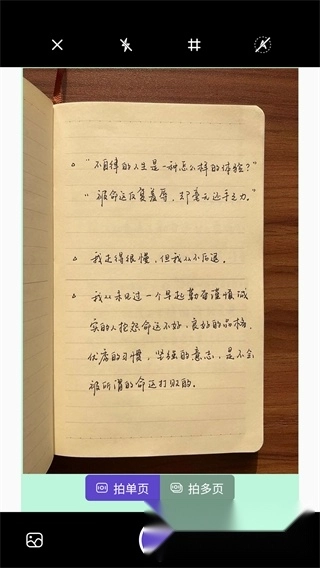 "不自律的人生是一种怎么样的体验?"
"被命运反复羞辱，却毫无还手之力。"
我走得很慢，但我从不后退。
我从未见过一个早起勤奋谨慎诚
实的人抱怨命运不好，良好的品格，
优秀的习惯，坚强的意志，是不会
被所谓的命运打败的。
拍单页
拍多页